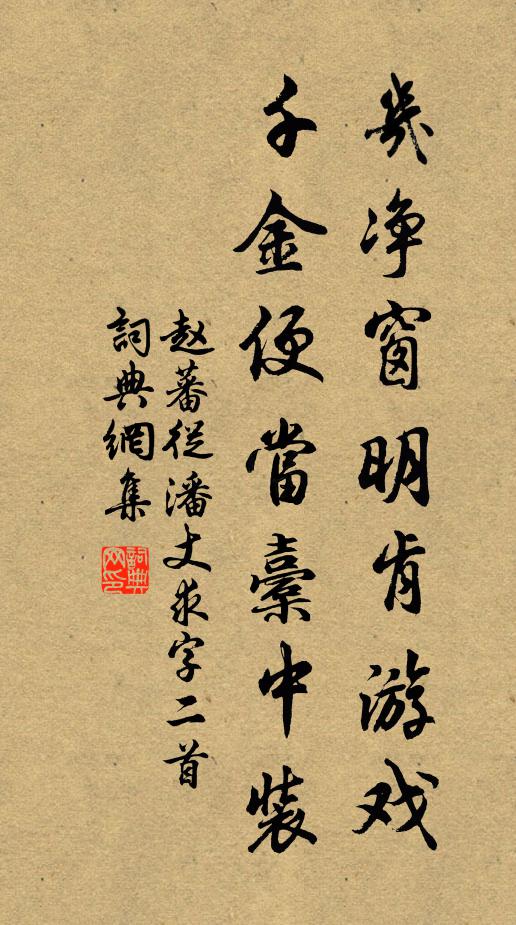 幾净窗明肯游戏
千金便當橐中裝
赵蕃從潘丈求字二首
詞典網集
詞典网印